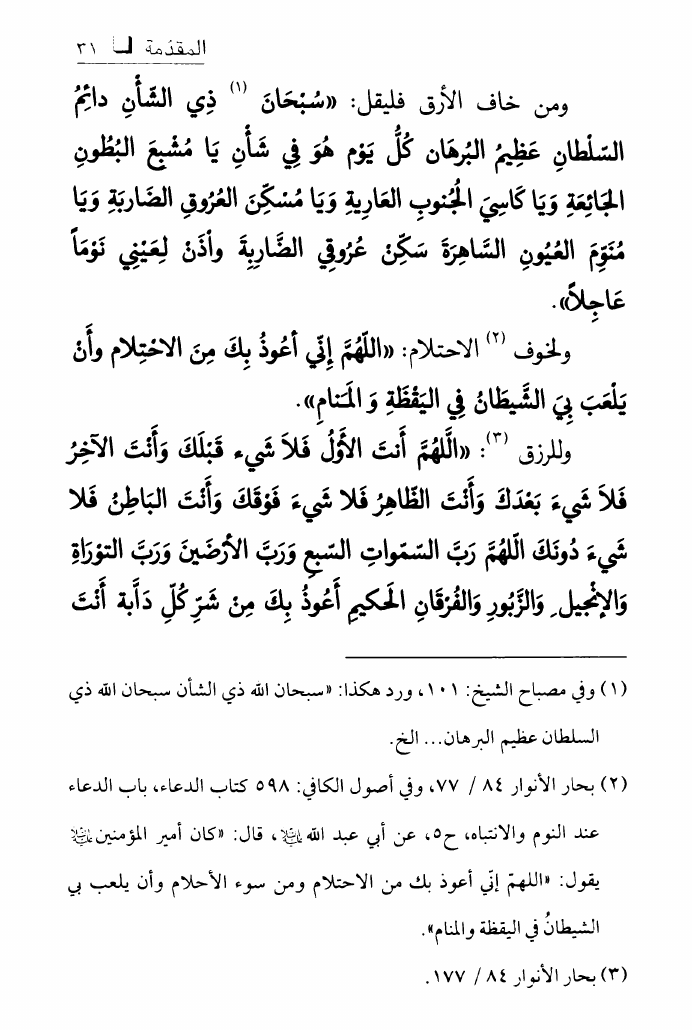 المقدّمة ٣١
ومن خاف الأرق فليقل: «سُبْحَانَ (١) ذِي الشَّأْنِ دائِمُ
السّلْطانِ عَظِيمُ البُرهَان كُلُّ يَوْم هُوَ فِي شَأْنِ يَا مُشْبِعَ البُطُونِ
الجَائِعَةِ وَيَا كَاسِيَ الجُنوبِ العَاريةِ وَيَا مُسْكِّنَ العُروقِ الضَاربَةِ وَيَا
مُنَوِّمَ العُيُونِ السَّاهِرَةَ سَكِّنْ عُرُوقِي الضَّارِبِةَ وأذَنْ لِعَيْنِي نَوْمَاً
عَاجِلاً».
ولخوف (٢) الاحتلام: «اللّهُمَّ إنِّي أعُوذُ بِكَ مِنَ الاحْتِلام وأَنْ
يَلْعَبَ بِيَ الشَّيطَانُ فِي اليَقْظَةِ وَ المَنامِ».
وللرزق (٣): «الَّلهُمَّ أَنتَ الأَوَّلُ فَلاَ شَيء قَبْلَكَ وَأَنْتَ الآخِرُ
فَلاَ شَيءَ بَعْدَكَ وَأَنْتَ الظّاهِرُ فَلا شَيءَ فَوْقَكَ وَأَنْتَ البَاطِنُ فَلا
شَيءَ دُونَكَ الّلهُمَّ رَبَّ السّمْواتِ السّبعِ وَرَبَّ الأرْضَينَ وَرَبَّ التوْرَاةِ
وَالإنْجيل ِ وَالزَّبُورِ وَالفُرْقَانِ الحَكيمِ أَعُوذُ بِكَ مِنْ شَرِّ كُلِّ دَآبة أَنْتَ
(١) وفي مصباح الشيخ: ١٠١، ورد هكذا: «سبحان الله ذي الشأن سبحان الله ذي
السلطان عظيم البرهان... الخ.
(٢) بحار الأنوار ٨٤ / ٧٧، وفي أصول الكافي: ٥٩٨ كتاب الدعاء، باب الدعاء
عند النوم والانتباه، ح٥، عن أبي عبد الله، قال: «كان أمير المؤمنين
يقول: «اللهمّ إنّي أعوذ بك من الاحتلام ومن سوء الأحلام وأن يلعب بي
الشيطانُ في اليقظة والمنام».
(٣) بحار الأنوار ٨٤ / ١٧٧.